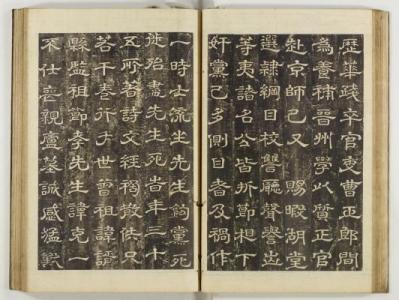 歷華踐卒官吏曹正郎間
為養補晉州學以質正官
赴京師己又 賜暇湖堂
選隷綱目校讐廳聲譽
等夷諸名公皆折節相下
奸黨已多側目者及禍作
一時士流坐先生鉤黨死
徙殆盡先生死時年三十
五所著詩文經禍散佚只
若干卷行于世曾祖諱
縣監祖節孝先生諱克一
不仕喪親廬墓誠感猛獸